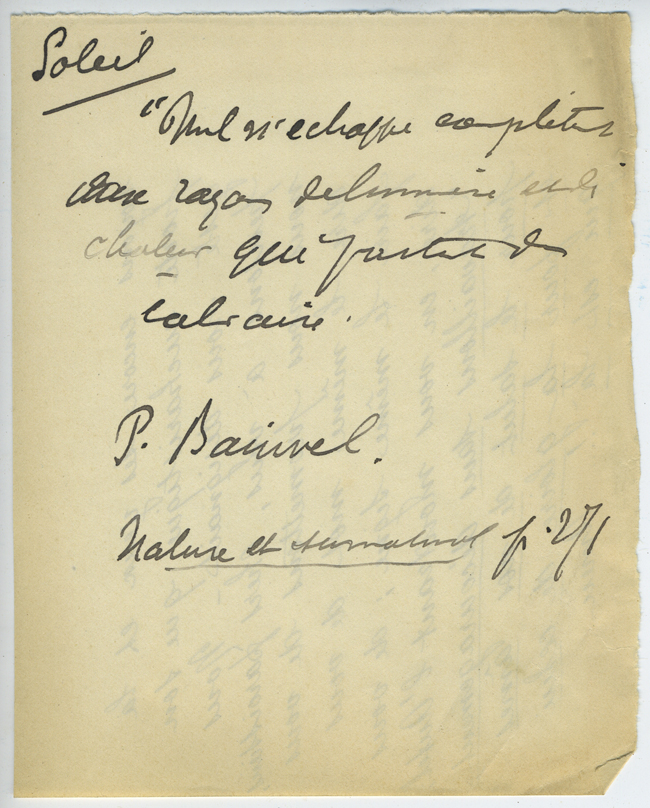 Soleil
"Nul n'echappe complètet
aux rayons de lumière et de
chaleur qui partent du
calvaire.
P. Bainvel.
Nature et surnaturel p. 271